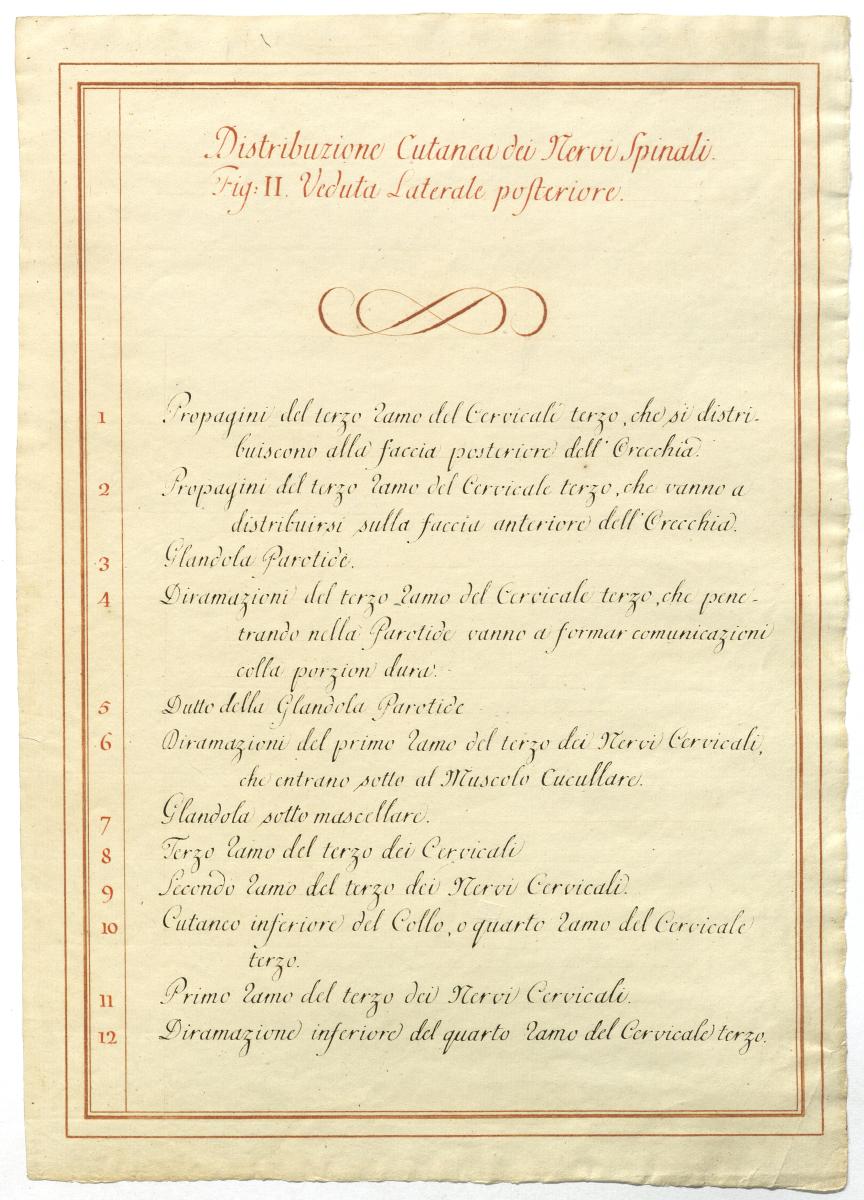 Distribuzione Cutanea dei Nervi Spinali.
Fig: II. Veduta Laterale posteriore.
1 Propagini del terzo ramo del Cervicale terzo, che si distri-
buiscono alla faccia posteriore dell'Orecchia.
2 Propagini del terzo ramo del Cervicale terzo, che vanno a
distribuirsi sulla faccia anteriore dell'Orecchia.
3 Glandola Parotide.
4 Diramazioni del terzo ramo del Cervicale terzo, che pene-
trando nella Parotide vanno a formar comunicazioni
colla porzion dura.
5 Dutto della Glandola Parotide
6 Diramazioni del primo ramo del terzo dei Nervi Cervicali,
che entrano sotto al Muscolo Cucullare.
7 Glandola sotto mascellare.
8 Terzo ramo del terzo dei Cervicali
9 Secondo ramo del terzo dei Nervi Cervicali.
10 Cutaneo inferiore del Collo, o quarto ramo del Cervicale
terzo.
11 Primo ramo del terzo dei Nervi Cervicali.
12 Diramazione inferiore del quarto ramo del Cervicale terzo.